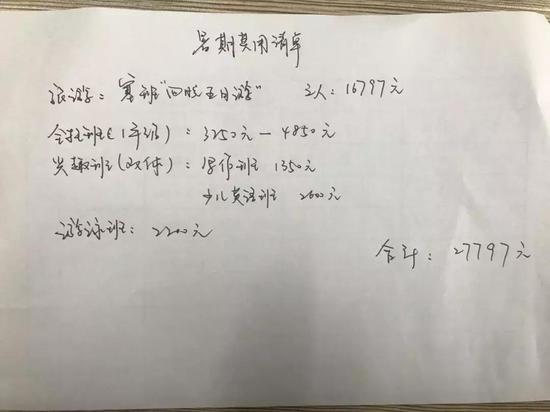 暑期费用清单
旅游：塞班“四晚五日游” 三人：16797元
全托班(1年级)：3250元－4850元
兴趣班(取体)：写作班 1350元
少儿英语班 2600元
游泳班：2200元
合计：27797元